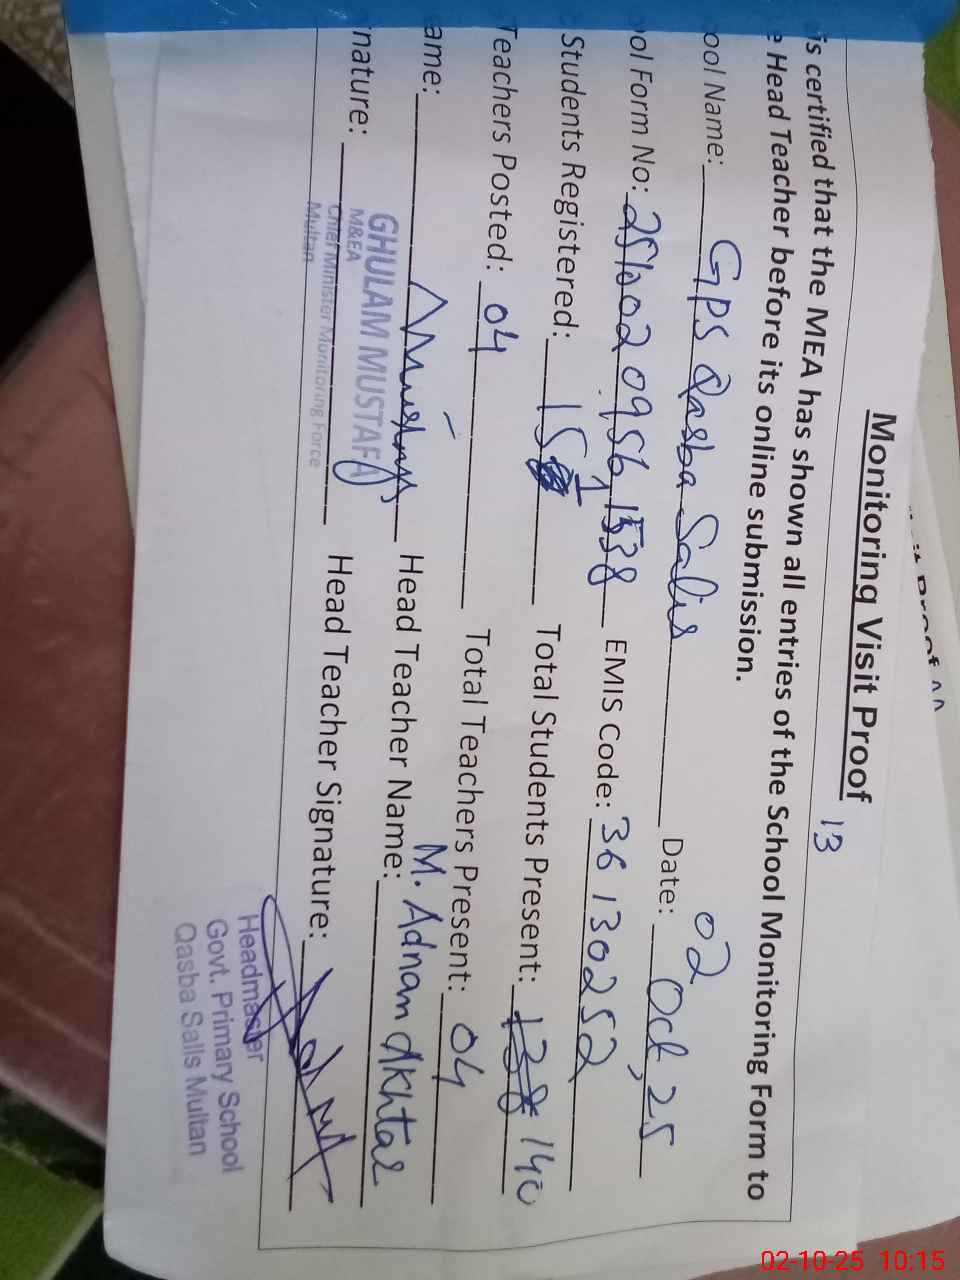 Monitoring Visit Proof 13
is certified that the MEA has shown all entries of the School Monitoring Form to
e Head Teacher before its online submission.
ool Name: GPS Qasba Salis Date: 02 Oct, 25
ol Form No: EMIS Code: 36130252
Students Registered: Total Students Present: 138 140
Teachers Posted: 04 Total Teachers Present: 04
ame: Head Teacher Name: M. Adnan Akhtar
nature: Head Teacher Signature:
GHULAM MUSTAFA
M&EA
Chief Minister Monitoring Force
Multan
Headmaster
Govt. Primary School
Qasba Salis Multan
02-10-25 10:15